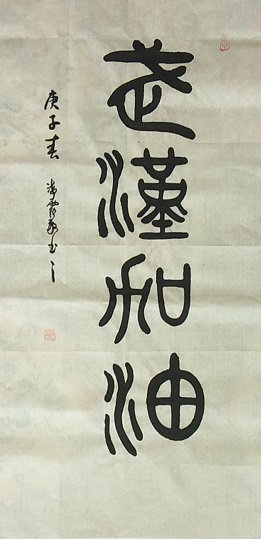 武漢加油
庚子春